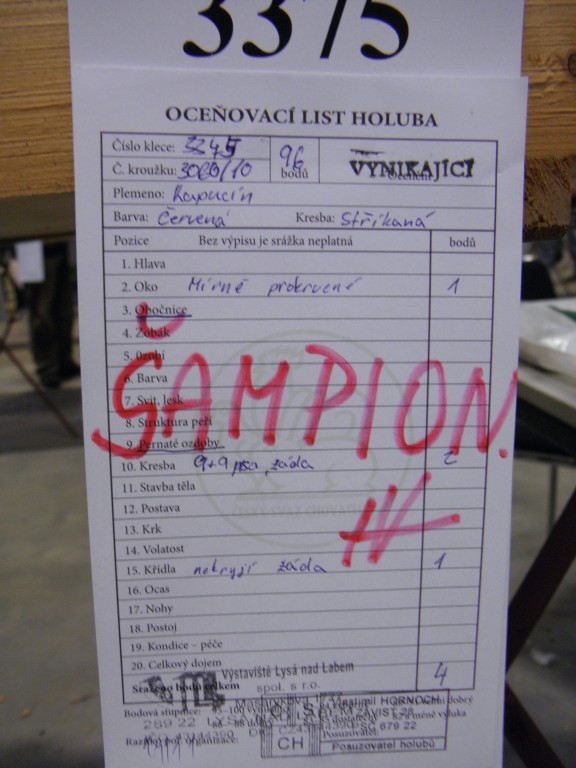 3375
OCEŇOVACÍ LIST HOLUBA
Číslo klece: 3345
Č. kroužku: 10 96 bodů VYNIKAJÍCÍ
Plemeno: Kapucín
Barva: Červená Kresba: Stříkaná
Pozice Bez výpisu je srážka neplatná bodů
1. Hlava
2. Oko Mírně prokrvené 1
3. Obočnice
4. Zobák
5. Ozobí
6. Barva
7. Svit, lesk
ŠAMPION.
8. Struktura peří
9. Pernaté ozdoby
10. Kresba 9+9 záda 2
11. Stavba těla
12. Postava
13. Krk
14. Volatost
15. Křídla nekryjí záda 1
16. Ocas
17. Nohy
18. Postoj
19. Kondice – péče
20. Celkový dojem
Výstaviště Lysá nad Labem
Sraženo bodů celkem spol. s r.o. 4
Bodová stupnice: HORNOCH
289 22 679 22
Posuzovatel:
CH Posuzovatel holubů